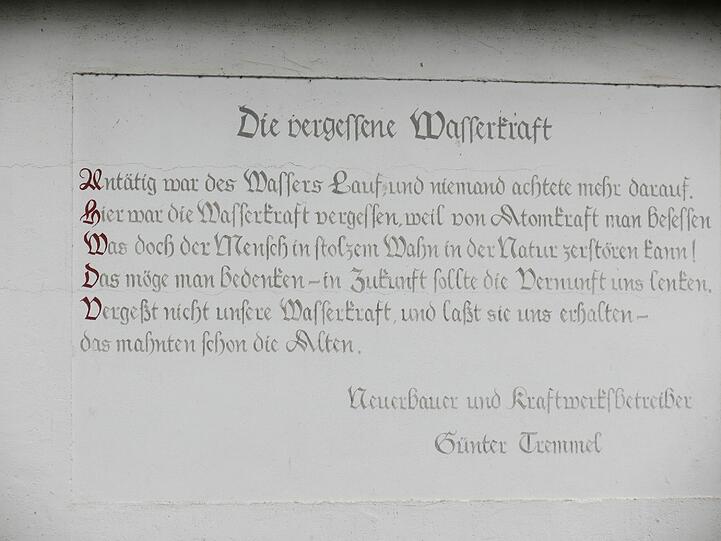 Die vergessene Wasserkraft
Untätig war des Wassers Lauf, und niemand achtete mehr darauf.
Hier war die Wasserkraft vergessen, weil von Atomkraft man besessen
Was doch der Mensch in stolzem Wahn in der Natur zerstören kann!
Das möge man bedenken – in Zukunft sollte die Vernunft uns lenken.
Vergeßt nicht unsere Wasserkraft, und laßt sie uns erhalten –
das mahnten schon die Alten.
Neuerbauer und Kraftwerksbetreiber
Günter Tremmel